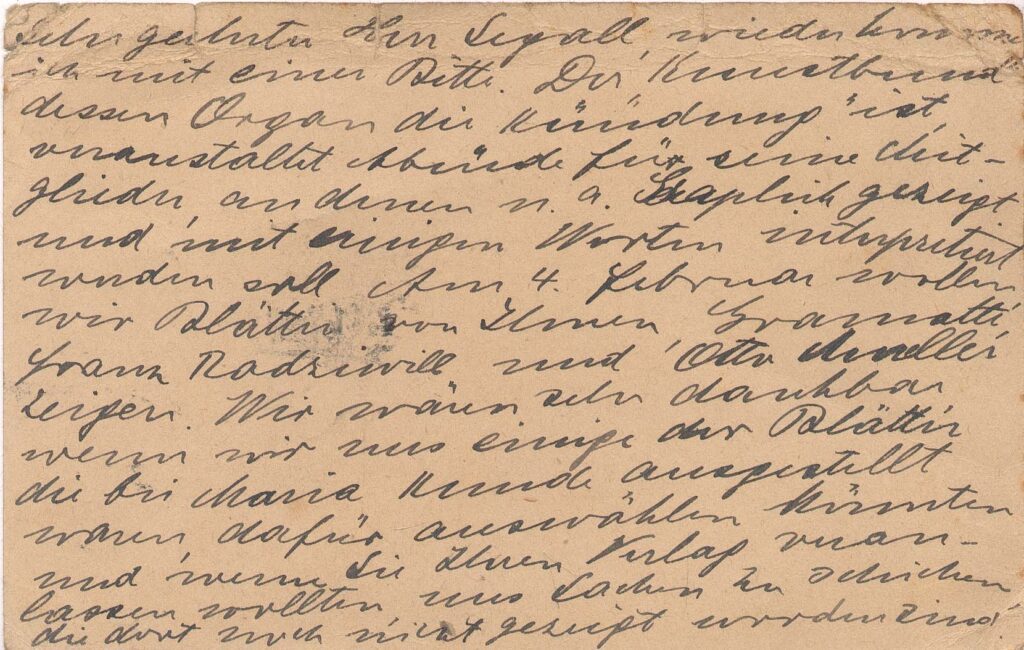 Sehr geehrter Herr Segall, wieder komme
ich mit einer Bitte. Der Kunstbund
dessen Organ die Kündung" ist,
veranstaltet Abende für seine Mit-
glieder, an denen u. a. Graphik gezeigt
und mit einigen Worten interpretiert
werden soll. Am 4. Februar wollen
wir Blätter von Ihnen, Gramatté,
Franz Radziwill und Otto Mueller
zeigen. Wir wären sehr dankbar
wenn wir uns einige der Blätter
die bei Maria Kunde ausgestellt
waren dafür auswählen könnten
und wenn Sie Ihren Verlag veran-
lassen wollten uns Sachen zu schicken
die dort noch nicht gezeigt worden sind.